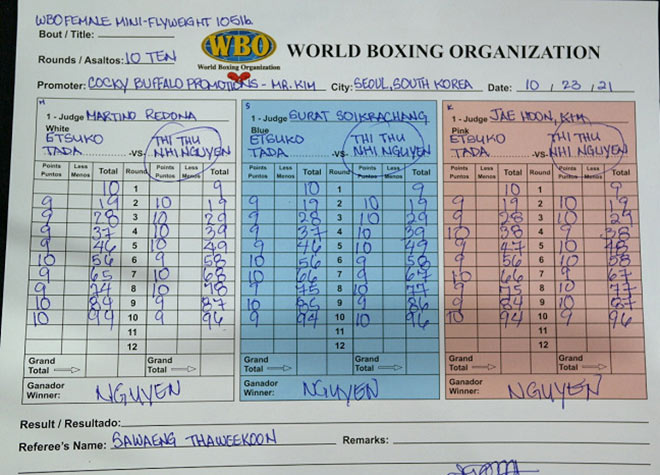 WBO FEMALE MINI-FLYWEIGHT 105lb
Bout / Title:
WBO
World Boxing Organization
WORLD BOXING ORGANIZATION
Rounds / Asaltos: 10 TEN
Promoter: COCKY BUFFALO PROMOTIONS - MR. KIM City: SEOUL, SOUTH KOREA Date: 10 / 23 / 21
1 - Judge MARTINO REDONA
White
ETSUKO TADA -VS- THI THU NHI NGUYEN
Points Puntos Less Menos Total Round Points Puntos Less Menos Total
10 1 9
9 19 2 10 19
9 28 3 10 29
9 37 4 10 39
9 46 5 10 49
10 56 6 9 58
9 65 7 10 68
9 74 8 10 78
10 84 9 9 87
10 94 10 9 96
11
12
Grand Total Grand Total
Ganador Winner: NGUYEN
1 - Judge SURAT SOIKRACHANG
Blue
ETSUKO TADA -VS- THI THU NHI NGUYEN
Points Puntos Less Menos Total Round Points Puntos Less Menos Total
10 1 9
9 19 2 10 19
9 28 3 10 29
9 37 4 10 39
9 46 5 10 49
10 56 6 9 58
10 66 7 9 67
9 75 8 10 77
10 85 9 9 86
9 94 10 10 96
11
12
Grand Total Grand Total
Ganador Winner: NGUYEN
1 - Judge JAE HOON, KIM
Pink
ETSUKO TADA -VS- THI THU NHI NGUYEN
Points Puntos Less Menos Total Round Points Puntos Less Menos Total
10 1 9
9 19 2 10 19
9 28 3 10 29
10 38 4 9 38
9 47 5 10 48
9 56 6 10 58
10 66 7 9 67
9 75 8 10 77
9 84 9 10 87
10 94 10 9 96
11
12
Grand Total Grand Total
Ganador Winner: NGUYEN
Result / Resultado:
Referee's Name: SAWAENG THAWEEKOON Remarks: